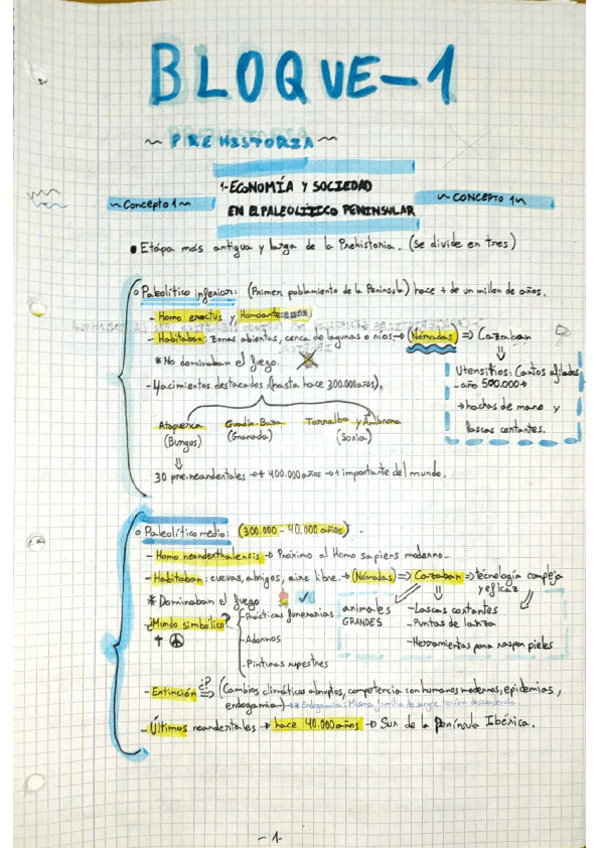 BLOQUE-1
~ PREHISTORIA ~
~ Concepto 1 ~
1-ECONOMÍA Y SOCIEDAD
EN EL PALEOLÍTICO PENINSULAR
~ CONCEPTO 1 ~
• Etapa más antigua y larga de la Prehistoria. (se divide en tres)
o Paleolítico inferior: (Primer poblamiento de la Península) hace + de un millon de años.
- Homo erectus y Homoantecessor
- Habitaban: zonas abiertas, cerca de lagunas o ríos → (Nómadas) ⇒ Cazaban
* No dominaban el fuego.
Utensilios: Cantos afilados
- año 500.000 →
→ hachas de mano y
lascas cortantes.
- Yacimientos destacados: (hasta hace 300.000 años).
Atapuerca
(Burgos)
Guadix-Baza
(Granada)
Torralba y Ambrona
(Soria)
30 pre-neandertales → + 400.000 años → + importante del mundo.
o Paleolítico medio: (300.000 - 40.000 años)
- Homo neanderthalensis → Próximo al Homo sapiens moderno.
- Habitaban: cuevas, abrigos, aire libre. → (Nómadas) ⇒ Cazaban ⇒ tecnología compleja
y eficaz
* Dominaban el fuego
- ¿Mundo simbólico?
- Prácticas funerarias
- Adornos
- Pinturas rupestres
animales
GRANDES
- Lascas cortantes
- Puntas de lanza
- Herramientas para raspar pieles
- Extinción ¿? ⇒ (Cambios climáticos abruptos, competencia con humanos modernos, epidemias,
endogamia) → * Endogamia: Misma familia de sangre tenían descendencia
- Últimos neandertales → hace 40.000 años → Sur de la Península Ibérica.
- 1 -